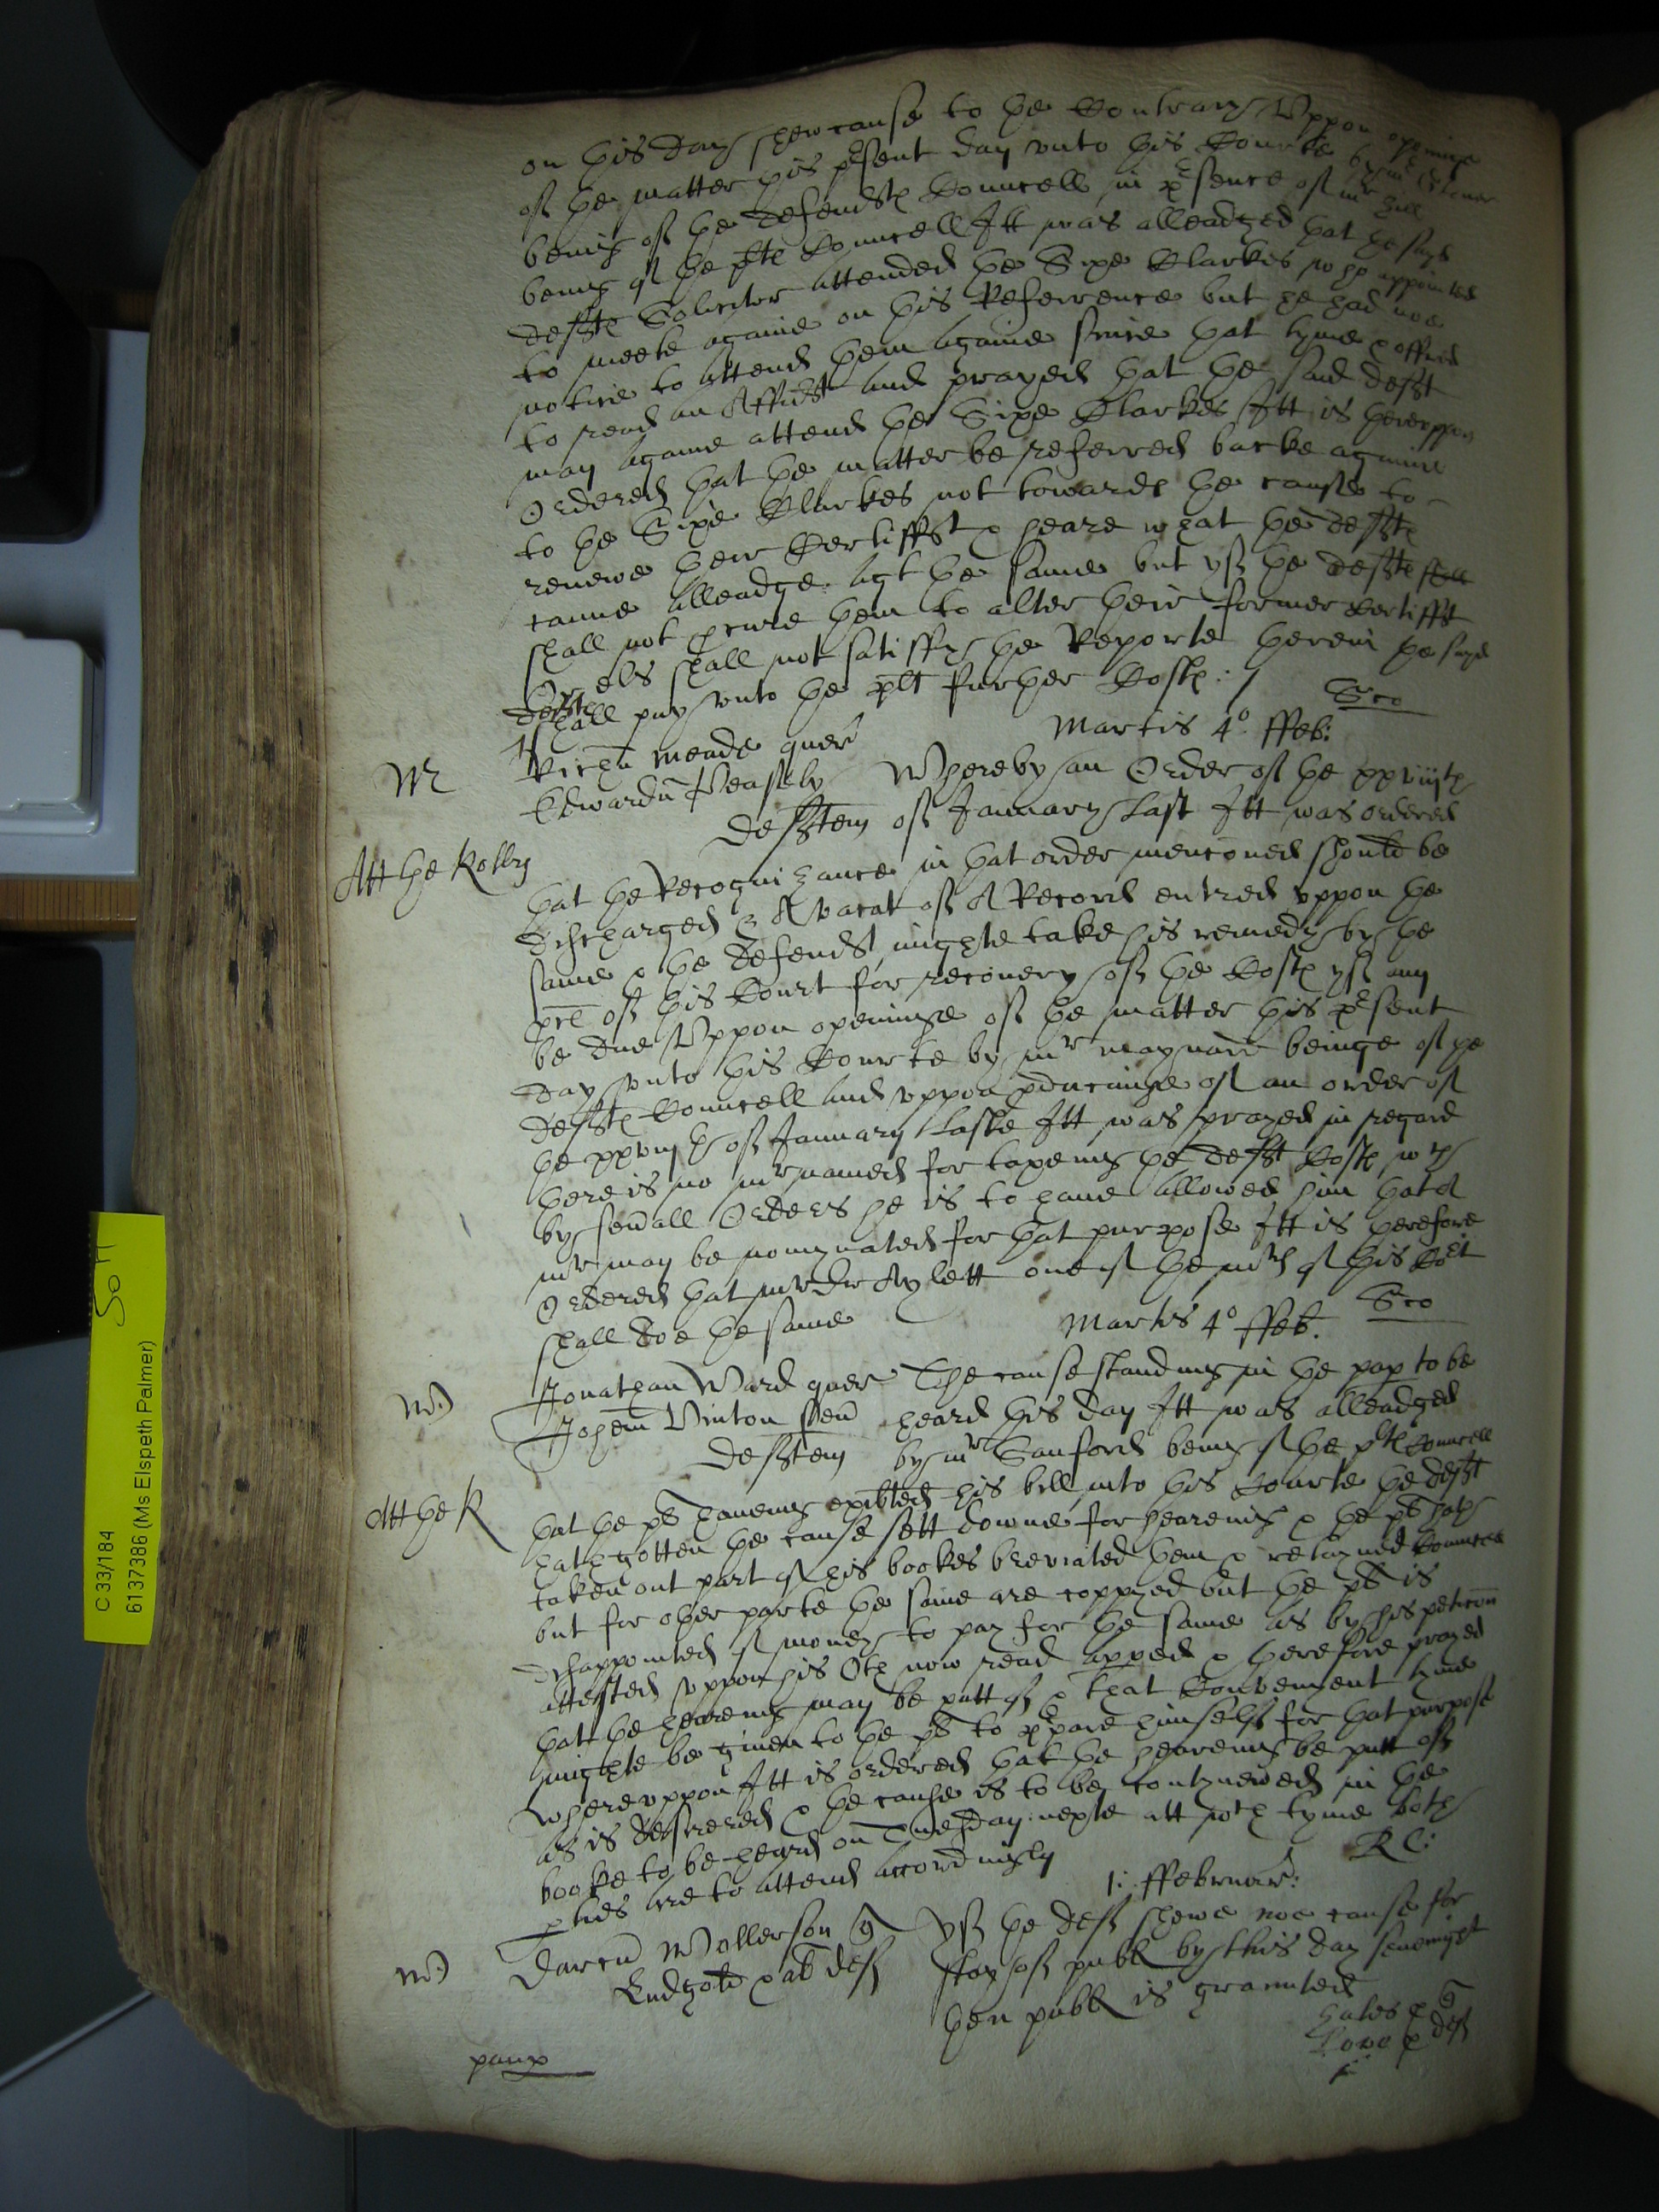 on this day shew cause to the Contrary Vppon openinge
of the matter this psent day vnto this Courte by mr
being of the Defendts Councell in psence of mr Hill
being of the plts Councell Itt was alleadged that the sayd
defts Solicitor attended the Sixe Clarkes who appointed
to meete againe on this Referrence but he had noe
notice to attend them againe since that tyme & offred
to read an Affidt and prayed that the said deft
may againe attend the Sixe Clarkes Itt is therevppon
Ordered that the matter be referred backe againe
to the Sixe Clarkes not towards the cause to
renewe their Certifft & heare what the defts
canne alleadge agt the same but yf the defts
shall not pcure them to alter their former Certifft
Or els shall not satisfy the Reporte therein the sayd
defts
shall pay vnto the plt further Costs :/
Sco
Martis 4o ffeb:
Mr
Richu Meade quer
Edwardu Peasely
Whereby an Order of the xxviijth
defftem of January last Itt was ordered
Att the Rolls
that the Recognizance in that order menconed should be
discharged & A vacat of A Record entred vppon the
same & the Defendt mighte take his remedy by the
pces of this Court for recouery of the Costs yf any
be due Vppon openinge of the matter this psent
day vnto this Courte by mr maynard beinge of the
defts Councell and vppon pducinge of an order of
the xxviijth of January Laste Itt was prayed in regard
there is no mr named for taxeing the deft Costs wch
by seuall Orders he is to haue allowed him that A
mr may be nomynated for that purpose Itt is therefore
Ordered that mr Dr Aylett one of the mrs of this Cort
shall doe the same
Sco
Martis 4o ffeb:
M)
Jonathan Ward quer The cause standing in the pap to be
Johem Vinton sen heard this day Itt was alleadged
defftem by mr Sanford being of the plts Councell
Att the R
that the plt haueing exibited his bill into this Courte the deft
hath gotten the cause sett downe for heareing & the plt hath
taken out part of his bookes breviated them & retayned Councell
but for other parte the same are coppyed but the plt is
disappointed of money to pay for the same as by his peticon
attested vppon his Oth now read apped & therefore prayed
that the heareing may be putt of & that Convenyent tyme
mighte be giuen to the plt to ppare himselfe for that purpose
Wherevppon Itt is ordered that the heareing be putt of
as is desired & the cause is to be contynewed in the
booke to be heard on Tuesday nexte att wch tyme both
pties are to attend accordingly
RC:
1: ffebruar:
M)
Darcu Wollerson q Yf the def shewe noe cause for
& al def stay of publ by this day sevenight
then publ is graunted
Hales p q
Lowe p def
paup
C 33/184
6137386 (Ms Elspeth Palmer)